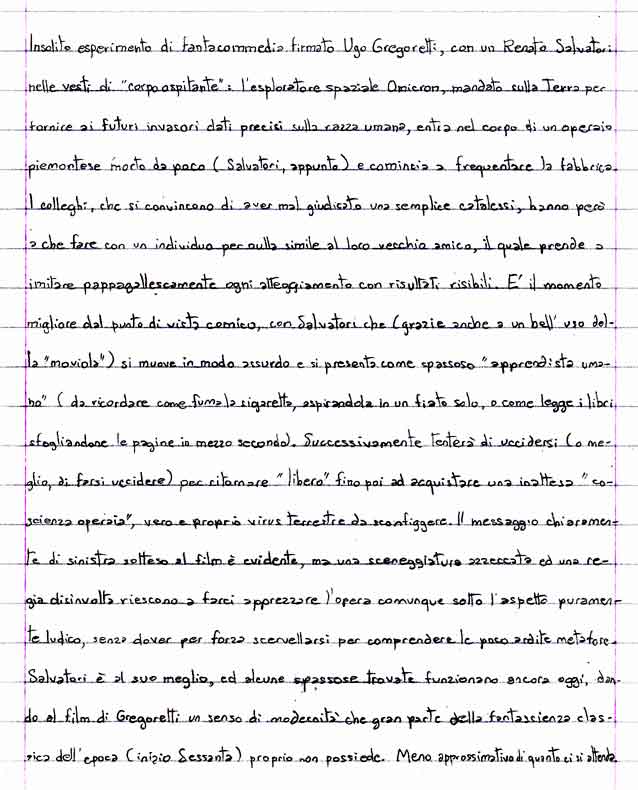 Insolito esperimento di fantacommedia firmato Ugo Gregoretti, con un Renato Salvatori
nelle vesti di "corpo ospitante": l'esploratore spaziale Omicron, mandato sulla Terra per
fornire ai futuri invasori dati precisi sulla razza umana, entra nel corpo di un operaio
piemontese morto da poco (Salvatori, appunto) e comincia a frequentare la fabbrica.
I colleghi, che si convincono di aver mal giudicato una semplice catalessi, hanno però
a che fare con un individuo per nulla simile al loro vecchio amico, il quale prende a
imitare pappagallescamente ogni atteggiamento con risultati risibili. E' il momento
migliore dal punto di vista comico, con Salvatori che (grazie anche a un bell' uso del-
la "moviola") si muove in modo assurdo e si presenta come spassoso "apprendista uma-
no" (da ricordare come fuma la sigaretta, aspirandola in un fiato solo, o come legge i libri
sfogliandone le pagine in mezzo secondo). Successivamente tenterà di uccidersi (o me-
glio, di farsi uccidere) per ritornare "libero" fino poi ad acquistare una inattesa "co-
scienza operaia", vero e proprio virus terrestre da sconfiggere. Il messaggio chiaramen-
te di sinistra sotteso al film è evidente, ma una sceneggiatura azzeccata ed una re-
gia disinvolta riescono a farci apprezzare l'opera comunque sotto l'aspetto puramen-
te ludico, senza dover per forza scervellarsi per comprendere le poco ardite metafore.
Salvatori è al suo meglio, ed alcune spassose trovate funzionano ancora oggi, dan-
do al film di Gregoretti un senso di modernità che gran parte della fantascienza clas-
sica dell'epoca (inizio Sessanta) proprio non possiede. Meno approssimativo di quanto ci si attenda.